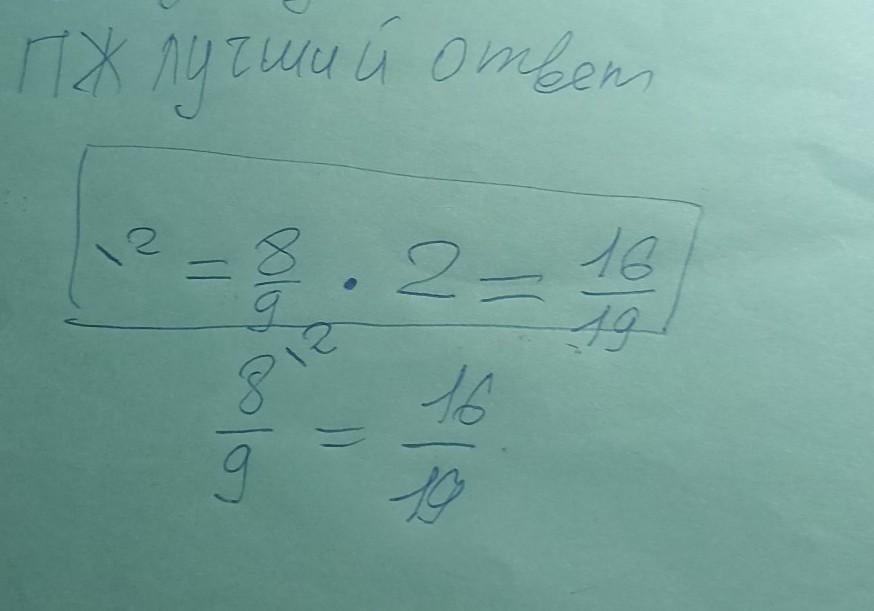 ПЖ лучший ответ
\2 = 8/9 · 2 = 16/19
8/9 \2 = 16/19